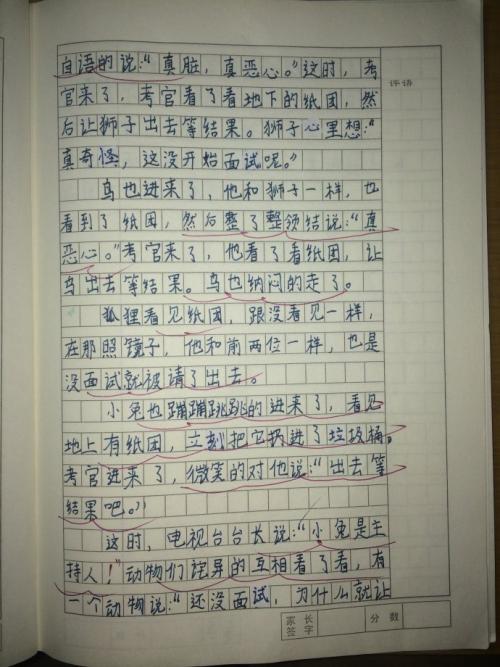 自语的说：“真脏，真恶心。”这时，考
官来了，考官看了看地下的纸团，然
后让狮子出去等结果。狮子心里想：“
真奇怪，这没开始面试呢。”
鸟也进来了，他和狮子一样，也
看到了纸团，然后整了整领结说：“真
恶心。”考官来了，他看了看纸团，让
鸟出去等结果。鸟也纳闷的走了。
狐狸看见纸团，跟没看见一样，
在那照镜子，他和前两位一样，也是
没面试就被请了出去。
小兔也蹦蹦跳跳的进来了，看见
地上有纸团，立刻把它扔进了垃圾桶。
考官进来了，微笑的对他说：“出去等
结果吧。”
这时，电视台台长说：“小兔是主
持人！”动物们诧异的互相看了看，有
一个动物说：“还没面试，为什么就让
评语
家长
签字
分数